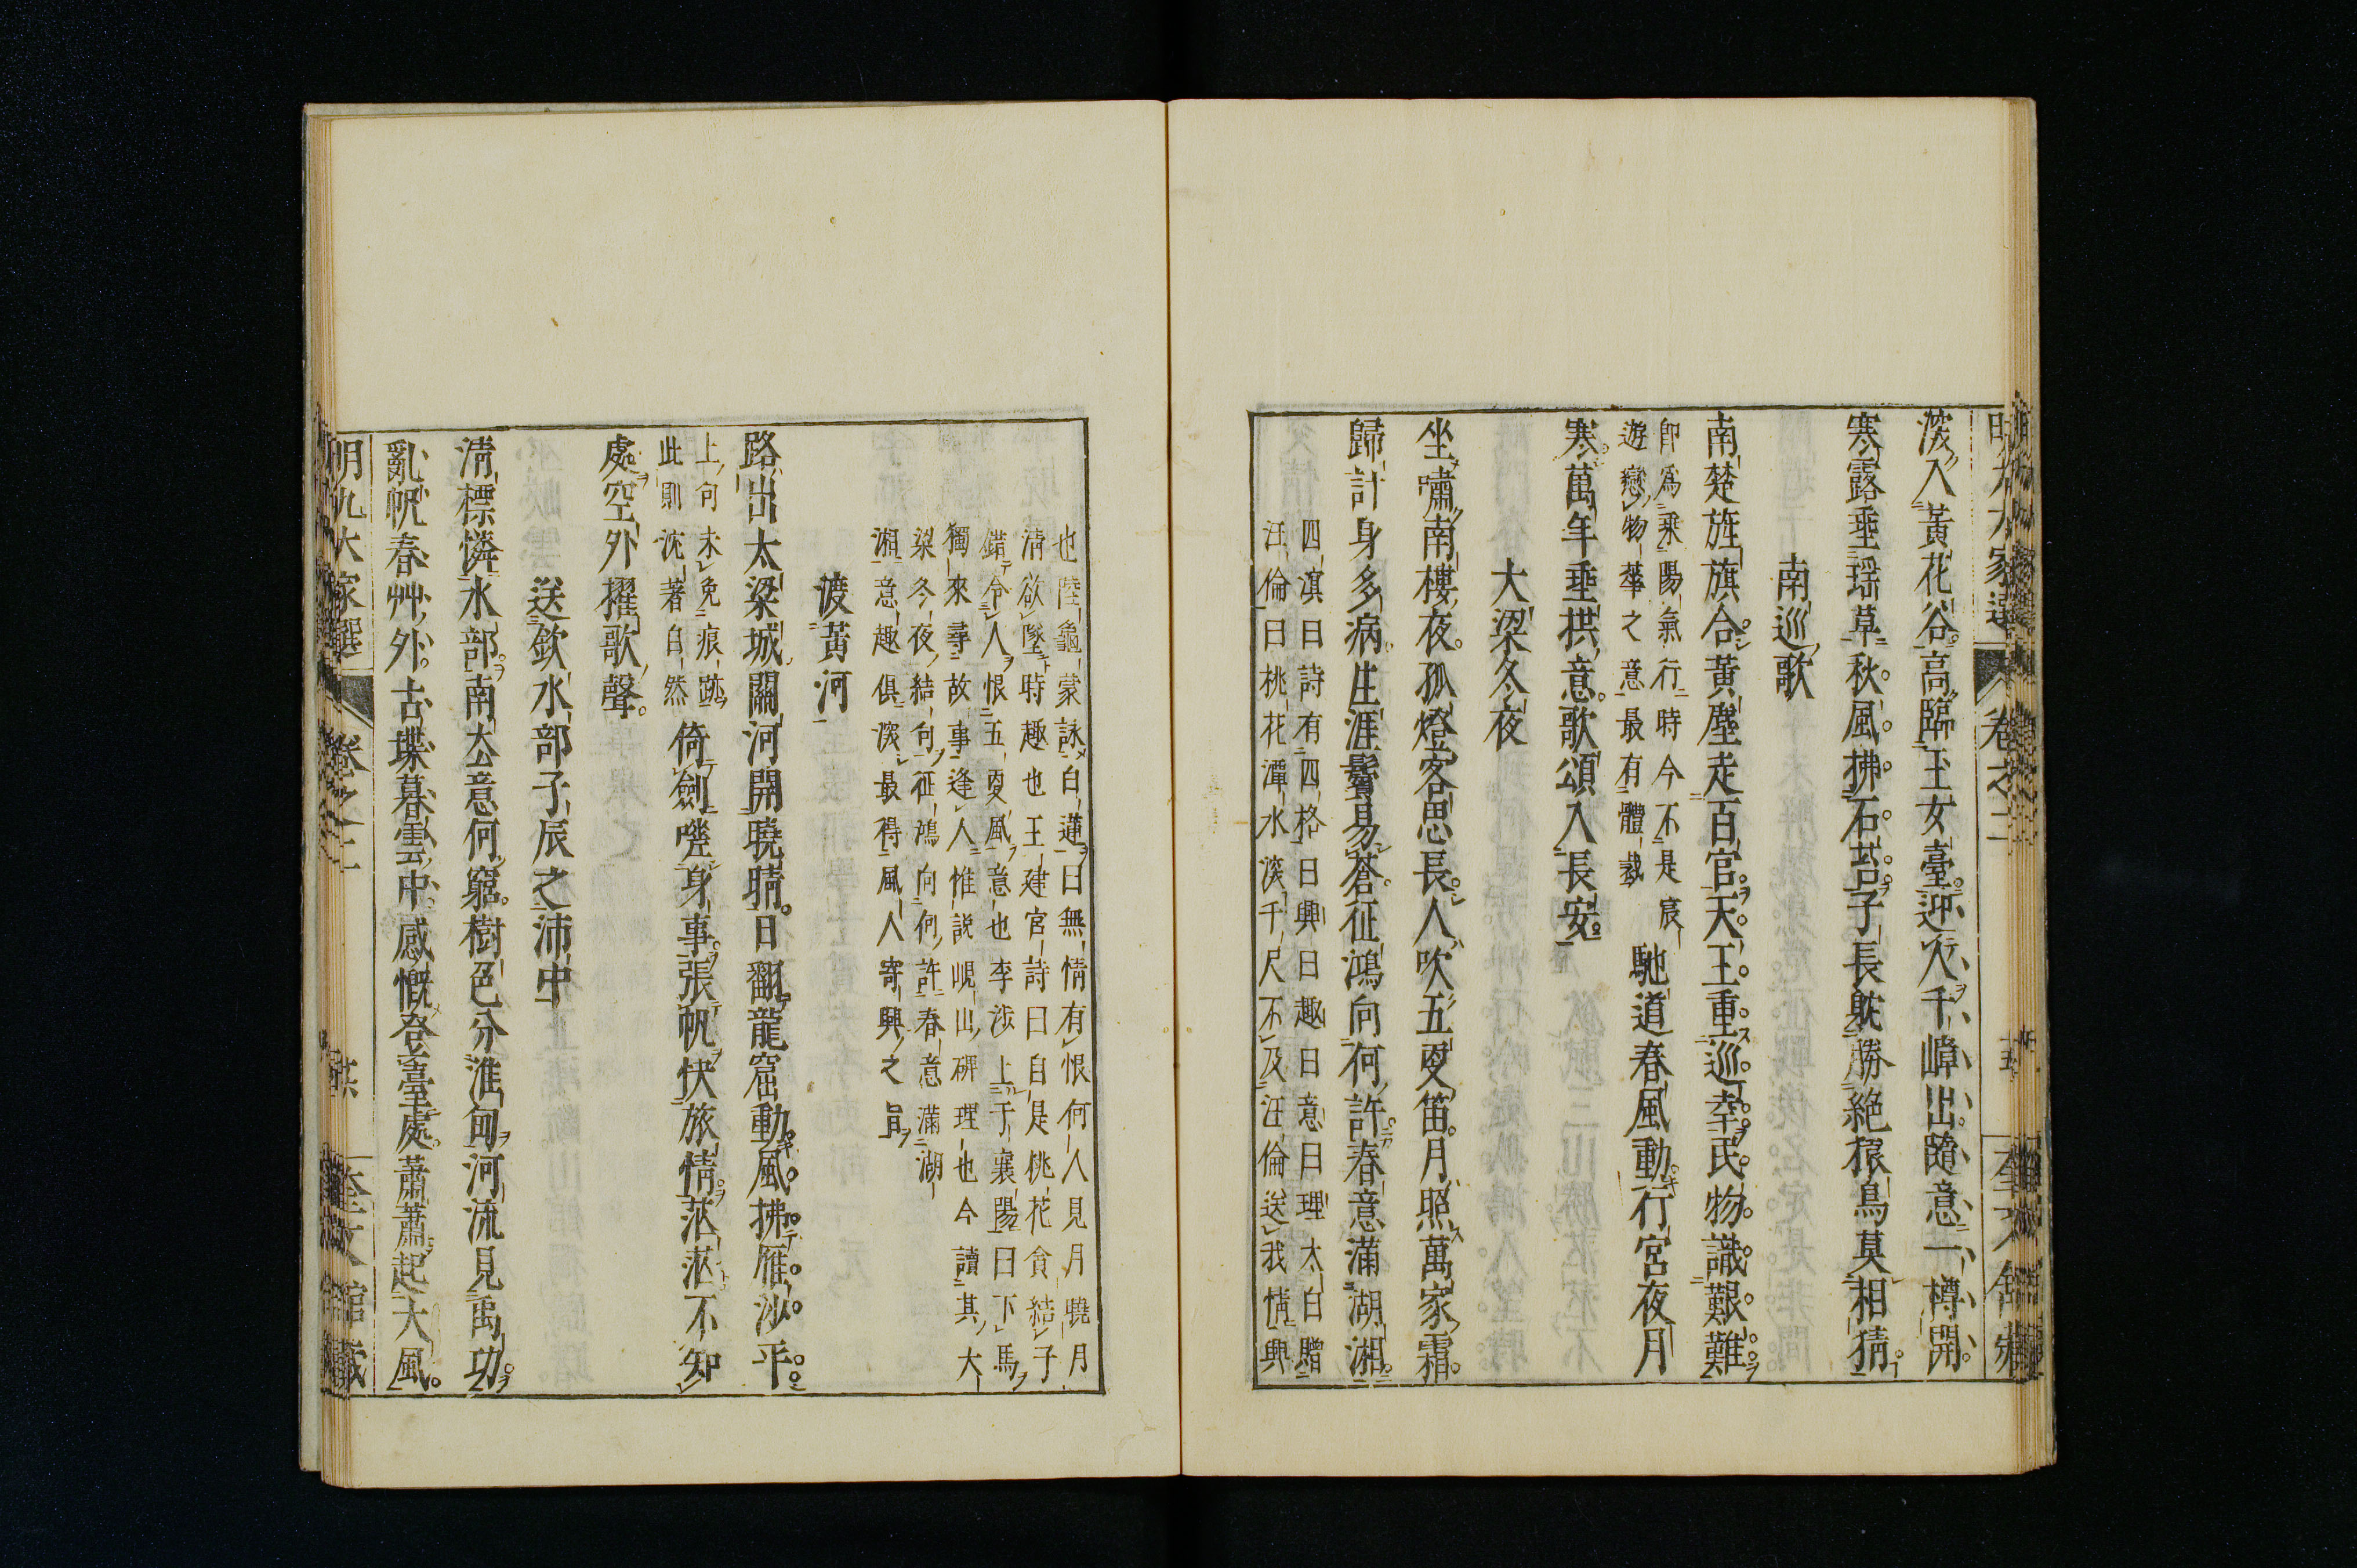 深入黃花谷高臨玉女臺迎人千嶂出隨意一樽開
寒露垂瑶草秋風拂石苔子長躭勝絶猿鳥莫相猜
南巡歌
南楚旌旗合黃塵走百官天王重巡幸民物識艱難
卽爲乘陽氣行時令不是宸
遊戀物華之意最有體裁
馳道春風動行宮夜月
寒萬年垂拱意歌頌入長安
大梁冬夜
坐嘯南樓夜孤燈客思長人吹五更笛月照萬家霜
歸計身多病生涯鬢易蒼征鴻向何許春意滿湖湘
四溟曰詩有四格曰興曰趣曰意曰理太白贈
汪倫曰桃花潭水深千尺不及汪倫送我情興
也陸龜蒙詠白蓮曰無情有恨何人見月曉月
淸欲墜時趣也王建宮詩曰自是桃花貪結子
錯令人恨五更風意也李涉上于襄陽曰下馬
獨來尋故事逢人惟說峴山碑理也今讀其大
梁冬夜結句征鴻向何許春意滿湖
湘意趣俱深最得風人寄興之旨
渡黃河
路出太梁城關河開曉晴日翻龍窟動風拂雁沙平
上句未免痕跡
此則沈著自然
倚劍嗟身事張帆快旅情茫茫不知
處空外櫂歌聲
送欽水部子辰之沛中
淸標憐水部南去意何窮樹色分淮甸河流見禹功
亂帆春艸外古堞暮雲中感慨登臺處蕭蕭起大風
明九大家選
卷之二
奎文館藏